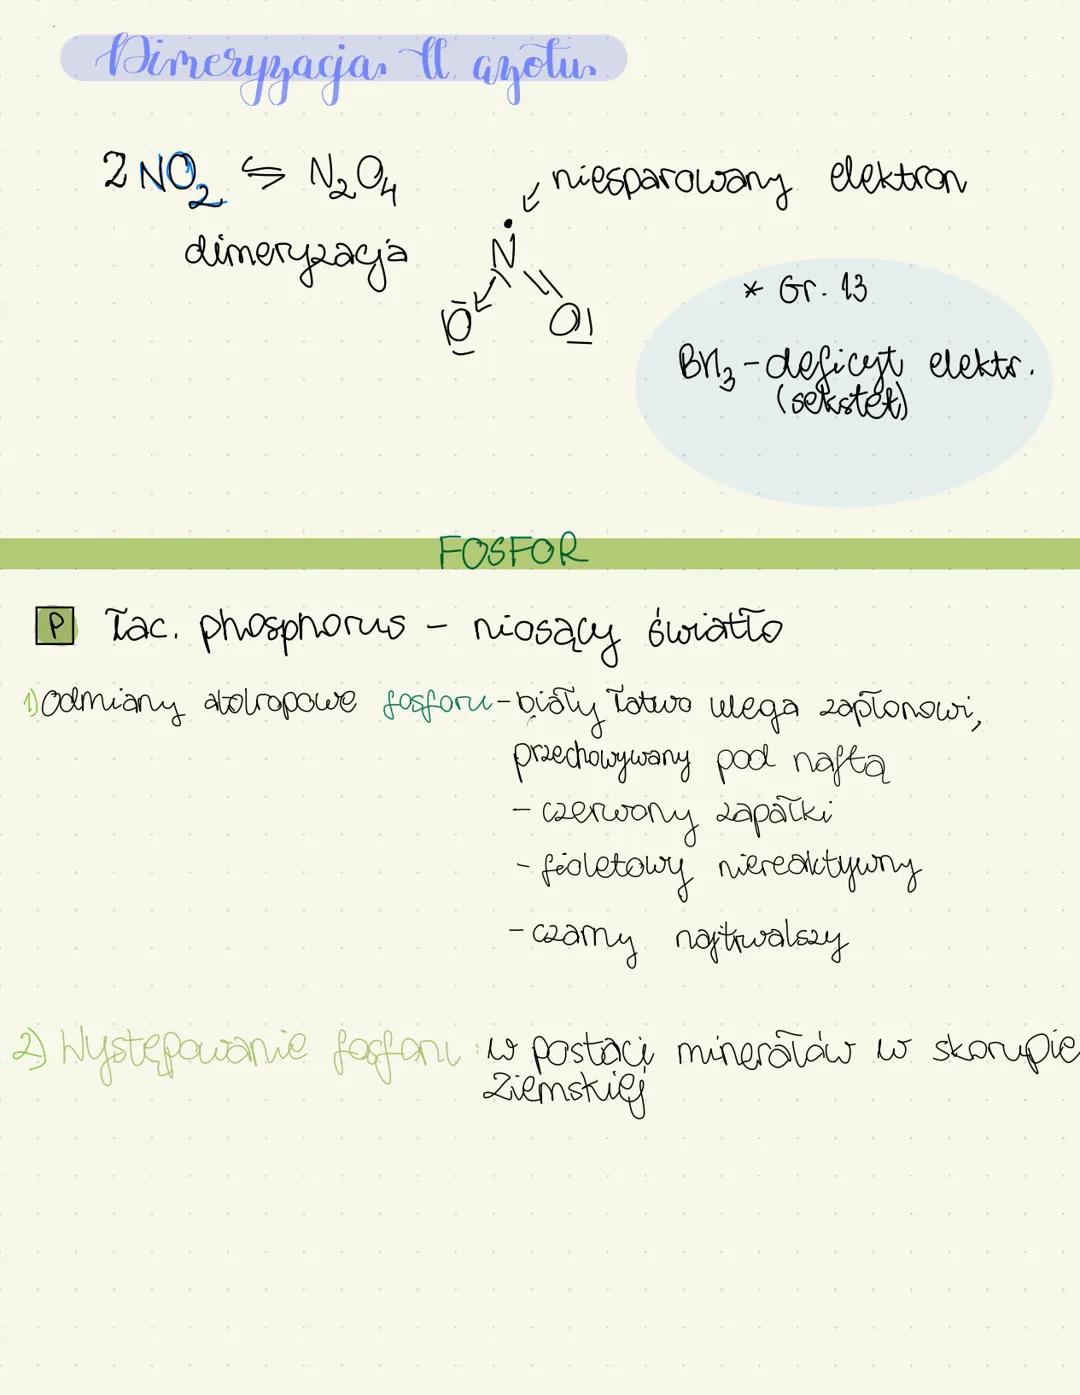 Dimeryzacja tl. azotu
2 NO₂ ⇆ N₂O₄
dimeryzacja
niesparowany elektron
N
O O
* Gr. 13
BH₃ - deficyt elektr.
(sekstet)
FOSFOR
P łac. phosphorus - niosący światło
1) Odmiany alotropowe fosforu - biały łatwo ulega zapłonowi,
przechowywany pod naftą
- czerwony zapałki
- fioletowy niereaktywny
- czarny najtrwalszy
2) Występowanie fosforu : w postaci minerałów w skorupie
Ziemskiej